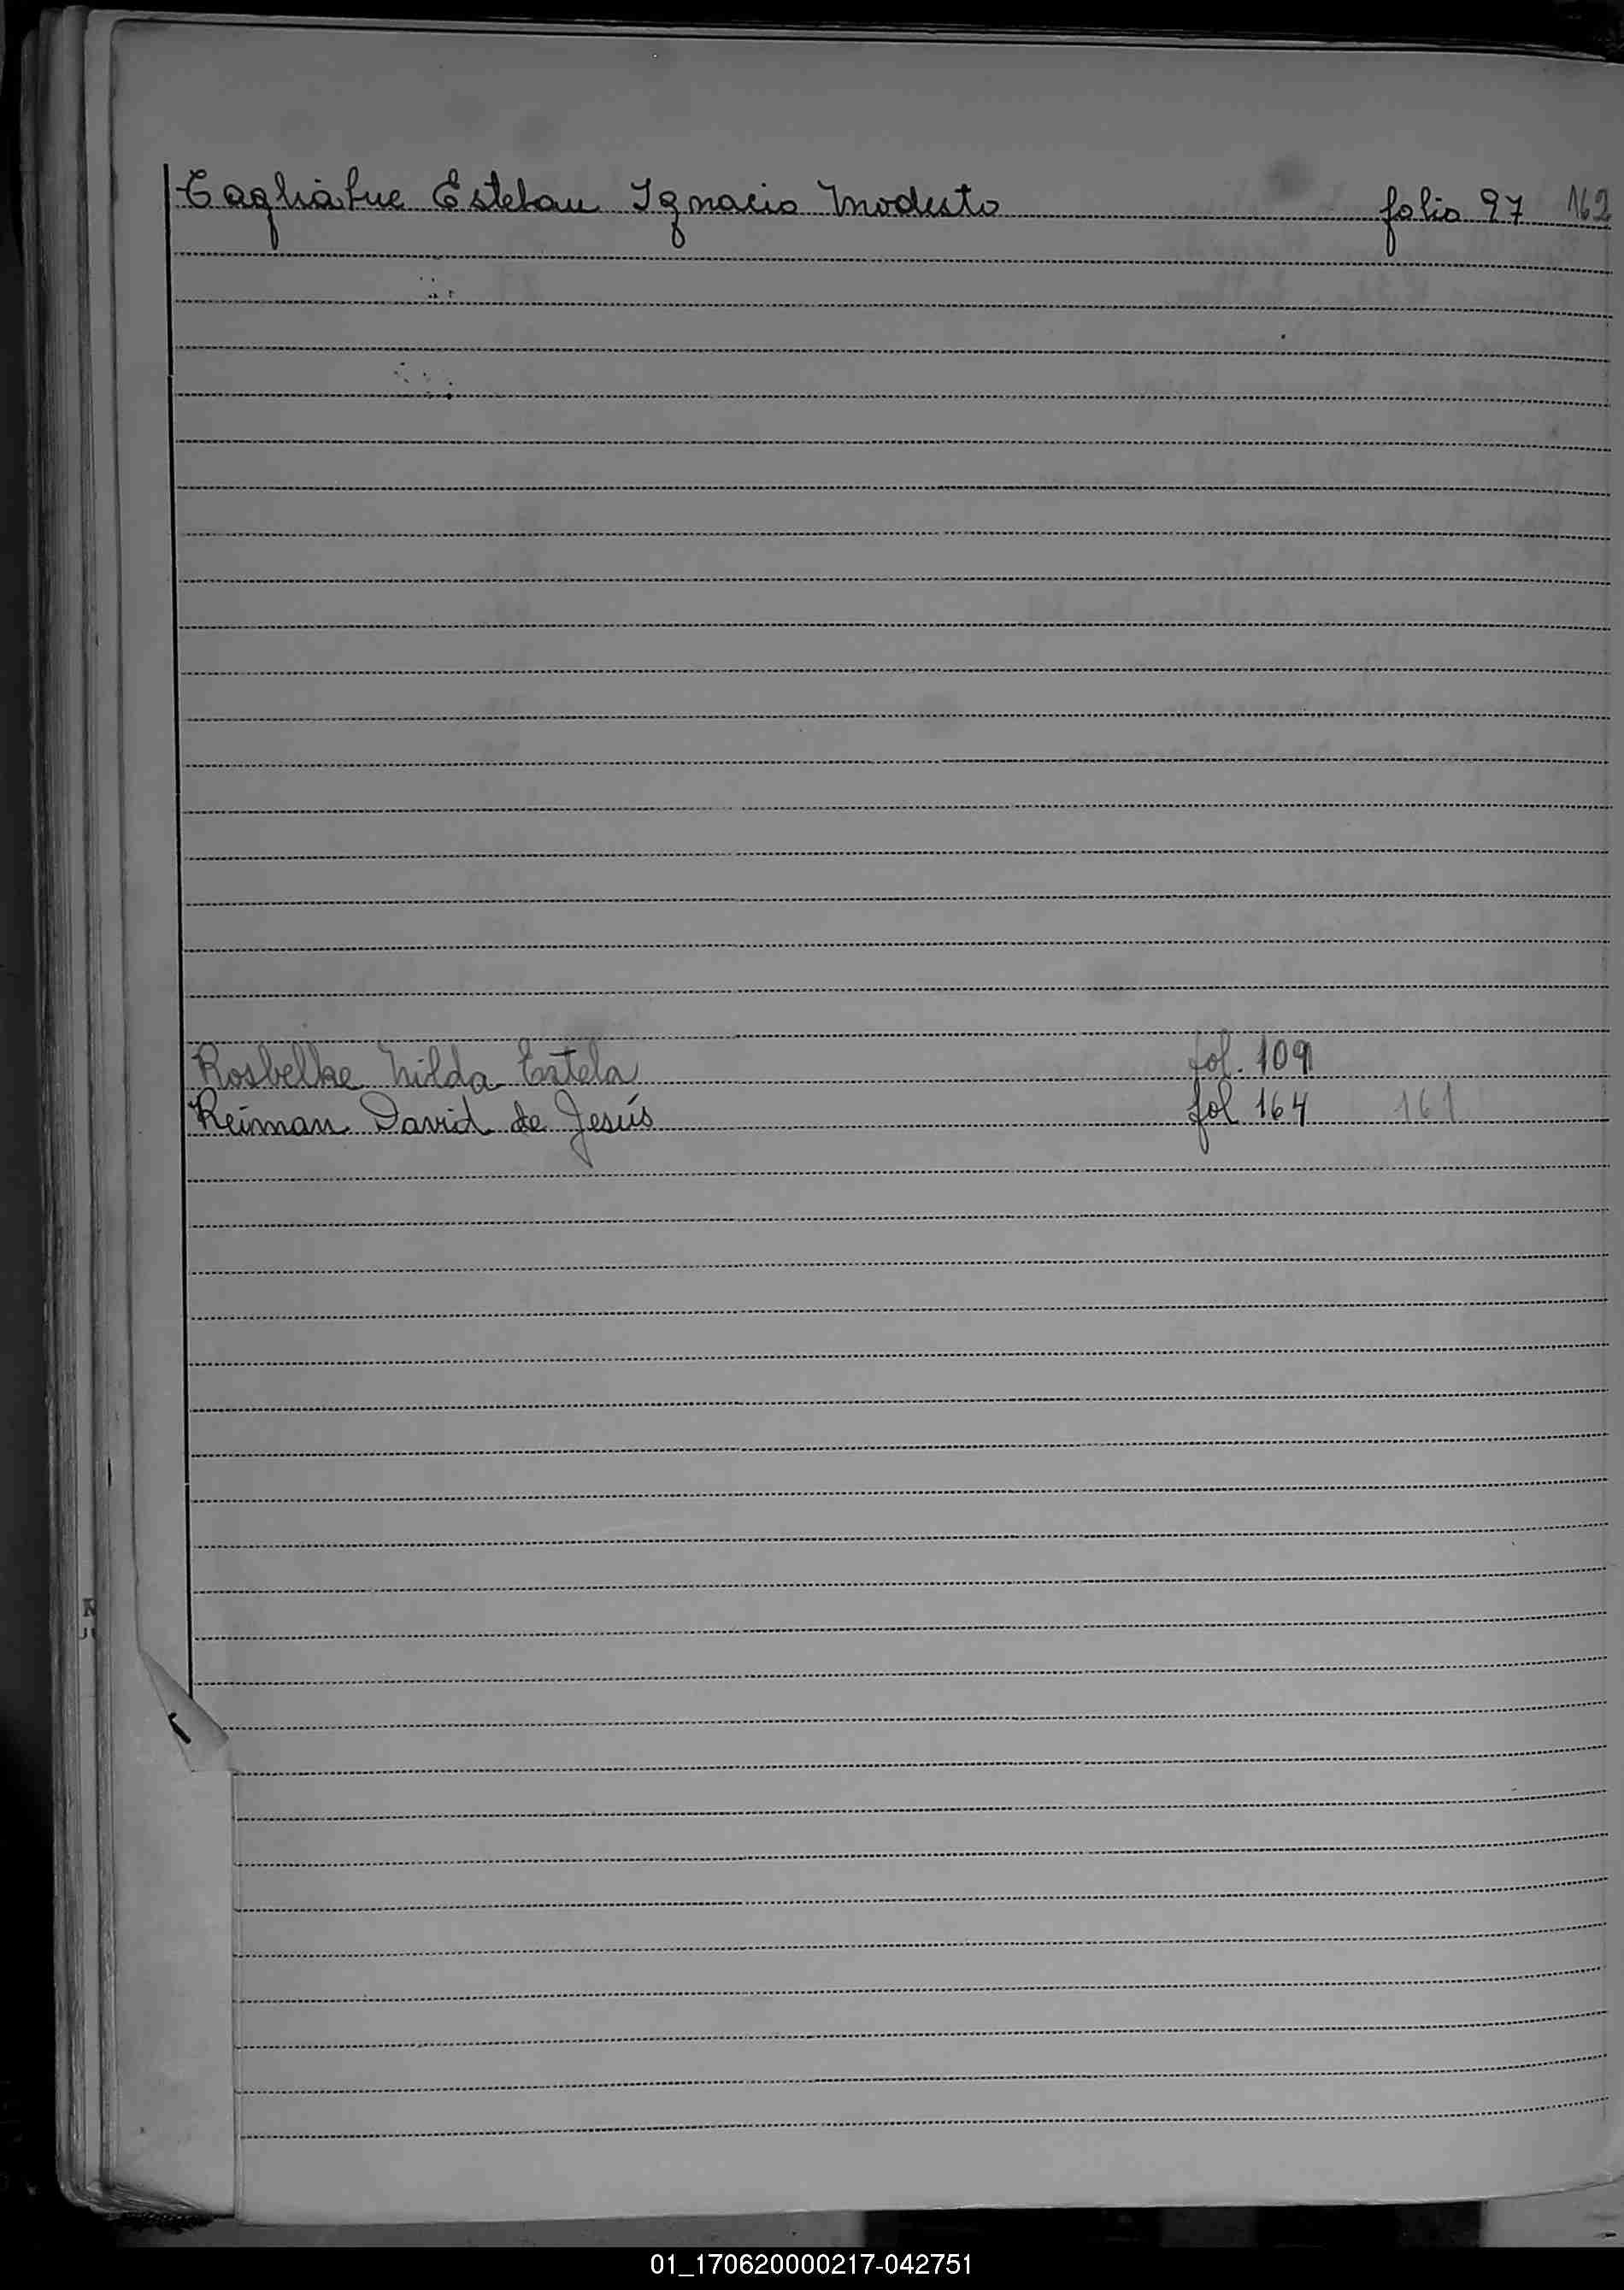 Tagliabue Esteban Ignacio Modesto folio 97 162
Rosbelke Nilda Estela fol. 109
Reiman David de Jesús fol 164 161
01_170620000217-042751